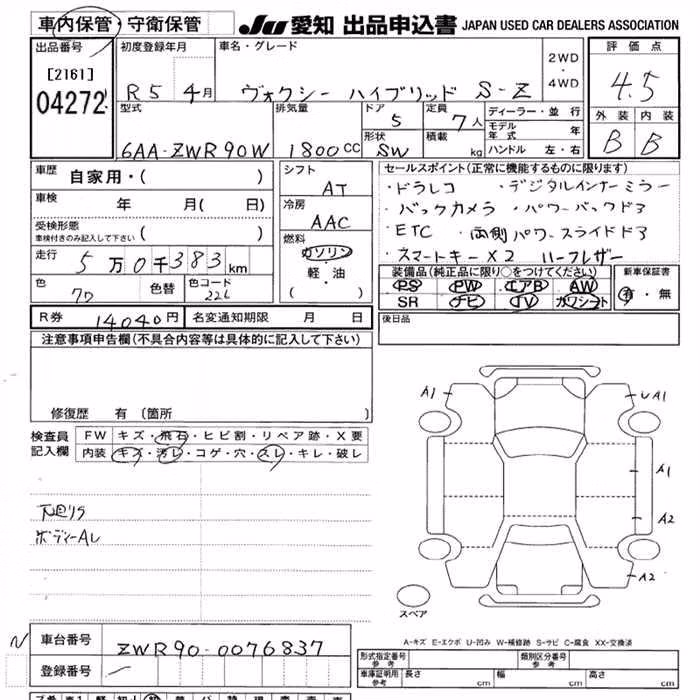 車内保管・守衛保管
JU 愛知 出品申込書 JAPAN USED CAR DEALERS ASSOCIATION
出品番号
[2161]
04272
初度登録年月
R5 4月
車名・グレード
ヴォクシー ハイブリッド S-Z
2WD
・
4WD
評価点
4.5
外装 内装
B B
型式
6AA-ZWR90W
排気量
1800CC
ドア
5
形状
SW
定員
7人
積載
kg
ディーラー・並行
モデル年式 年
ハンドル 左・右
車歴
自家用・( )
車検
年 月( 日)
受検形態
車検付きのみ記入して下さい ( )
走行
5万0千383km
色
色替
色コード
シフト
AT
冷房
AAC
燃料
ガソリン
・
軽・油
( )
セールスポイント(正常に機能するものに限ります)
・ドラレコ ・デジタルインナーミラー
・バックカメラ ・パワーバックドア
・ETC ・両側パワースライドドア
・スマートキー×2 ハーフレザー
装備品(純正品に限り○をつけてください)
PS PW エアB AW
SR ナビ TV カワシート
新車保証書
有・無
後日品
R券 14040円 名変通知期限 月 日
注意事項申告欄(不具合内容等は具体的に記入して下さい)
修復歴 有(箇所 )
検査員
記入欄
FW キズ・飛石・ヒビ割・リペア跡・X要
内装 キズ・汚レ・コゲ・穴・スレ・キレ・破レ
下廻りS
ボディーAL
A1
UA1
A1
A2
A2
スペア
A-キズ E-エクボ U-凹み W-補修跡 S-サビ C-腐食 XX-交換済
N
車台番号 ZWR90-0076837
登録番号
形式指定番号
参考
類別区分番号
参考
車庫証明用
参考
長さ cm 幅 cm 高さ cm